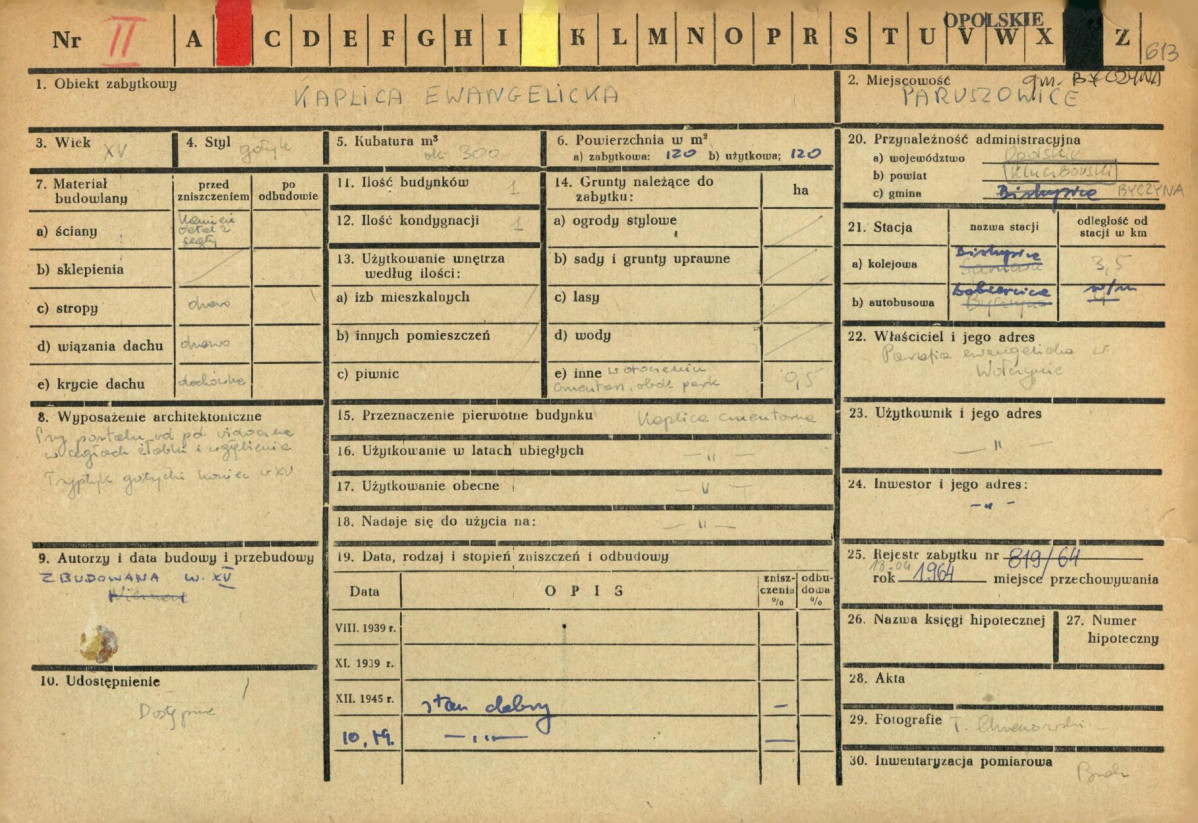 Nr II A C D E F G H I K L M N O P R S T U V W X Z
OPOLSKIE
613
1. Obiekt zabytkowy
KAPLICA EWANGELICKA
2. Miejscowość gm. BYCZYNA
PARUSZOWICE
3. Wiek XV
4. Styl gotyk
5. Kubatura m³
ok. 300
6. Powierzchnia w m²
a) zabytkowa: 120 b) użytkowa: 120
7. Materiał budowlany
przed zniszczeniem
po odbudowie
a) ściany
b) sklepienia
c) stropy drewno
d) wiązania dachu drewno
e) krycie dachu dachówka
8. Wyposażenie architektoniczne
Przy portalu od pd widoczne
w cegłach żłobki i wgłębienia
Tryptyk gotycki koniec w XV
9. Autorzy i data budowy i przebudowy
ZBUDOWANA W. XV
10. Udostępnienie
Dostępne
11. Ilość budynków 1
12. Ilość kondygnacji 1
13. Użytkowanie wnętrza
według ilości:
a) izb mieszkalnych
b) innych pomieszczeń
c) piwnic
14. Grunty należące do
zabytku:
ha
a) ogrody stylowe
b) sady i grunty uprawne
c) lasy
d) wody
e) inne w otoczeniu
cmentarz, obok park
0,5
15. Przeznaczenie pierwotne budynku Kaplica cmentarna
16. Użytkowanie w latach ubiegłych — " —
17. Użytkowanie obecne — " —
18. Nadaje się do użycia na: — " —
19. Data, rodzaj i stopień zniszczeń i odbudowy
Data
OPIS
znisz-
czenia
%
odbu-
dowa
%
VIII. 1939 r.
XI. 1939 r.
XII. 1945 r. stan dobry —
10.79. — " — —
20. Przynależność administracyjna
a) województwo Opolskie
b) powiat Kluczborski
c) gmina Biskupice BYCZYNA
21. Stacja
nazwa stacji
odległość od
stacji w km
a) kolejowa Biskupice 3,5
b) autobusowa w/m
22. Właściciel i jego adres
Parafia ewangelicka w
Wołczynie
23. Użytkownik i jego adres
— " —
24. Inwestor i jego adres:
- " -
25. Rejestr zabytku nr 819/64
13.04
rok 1964 miejsce przechowywania
26. Nazwa księgi hipotecznej
27. Numer
hipoteczny
28. Akta
29. Fotografie
30. Inwentaryzacja pomiarowa
Brak